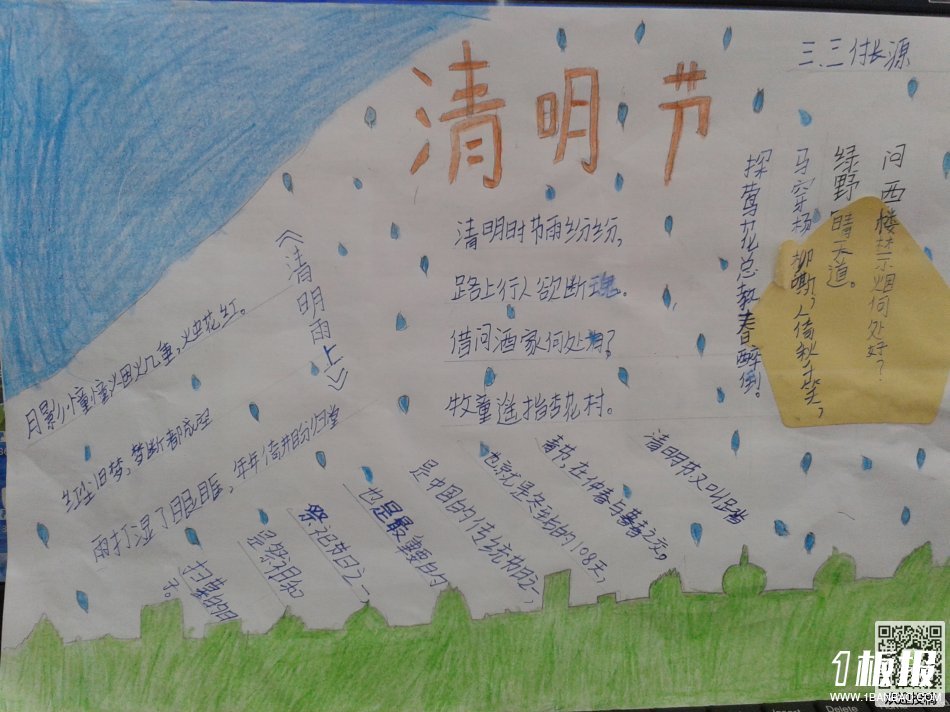 清明节
三.三 付长源
问西楼禁烟何处好？
绿野晴天道。
马穿杨柳嘶，人倚秋千笑，
探莺花总教春醉倒！
清明时节雨纷纷，
路上行人欲断魂。
借问酒家何处有？
牧童遥指杏花村。
《清明雨上》
月影憧憧烟火几重，烛花红。
红尘旧梦，梦断都成空
雨打湿了眼眶，年年倚井盼归堂
清明节又叫踏
春节，在仲春与暮春之交。
也就是冬至的108天，
是中国的传统节日之一，
也是最重要的
祭祀节日之一，
是祭祖和
扫墓的日
子。
1板报
WWW.1BANBAO.COM
欢迎投稿
Delete